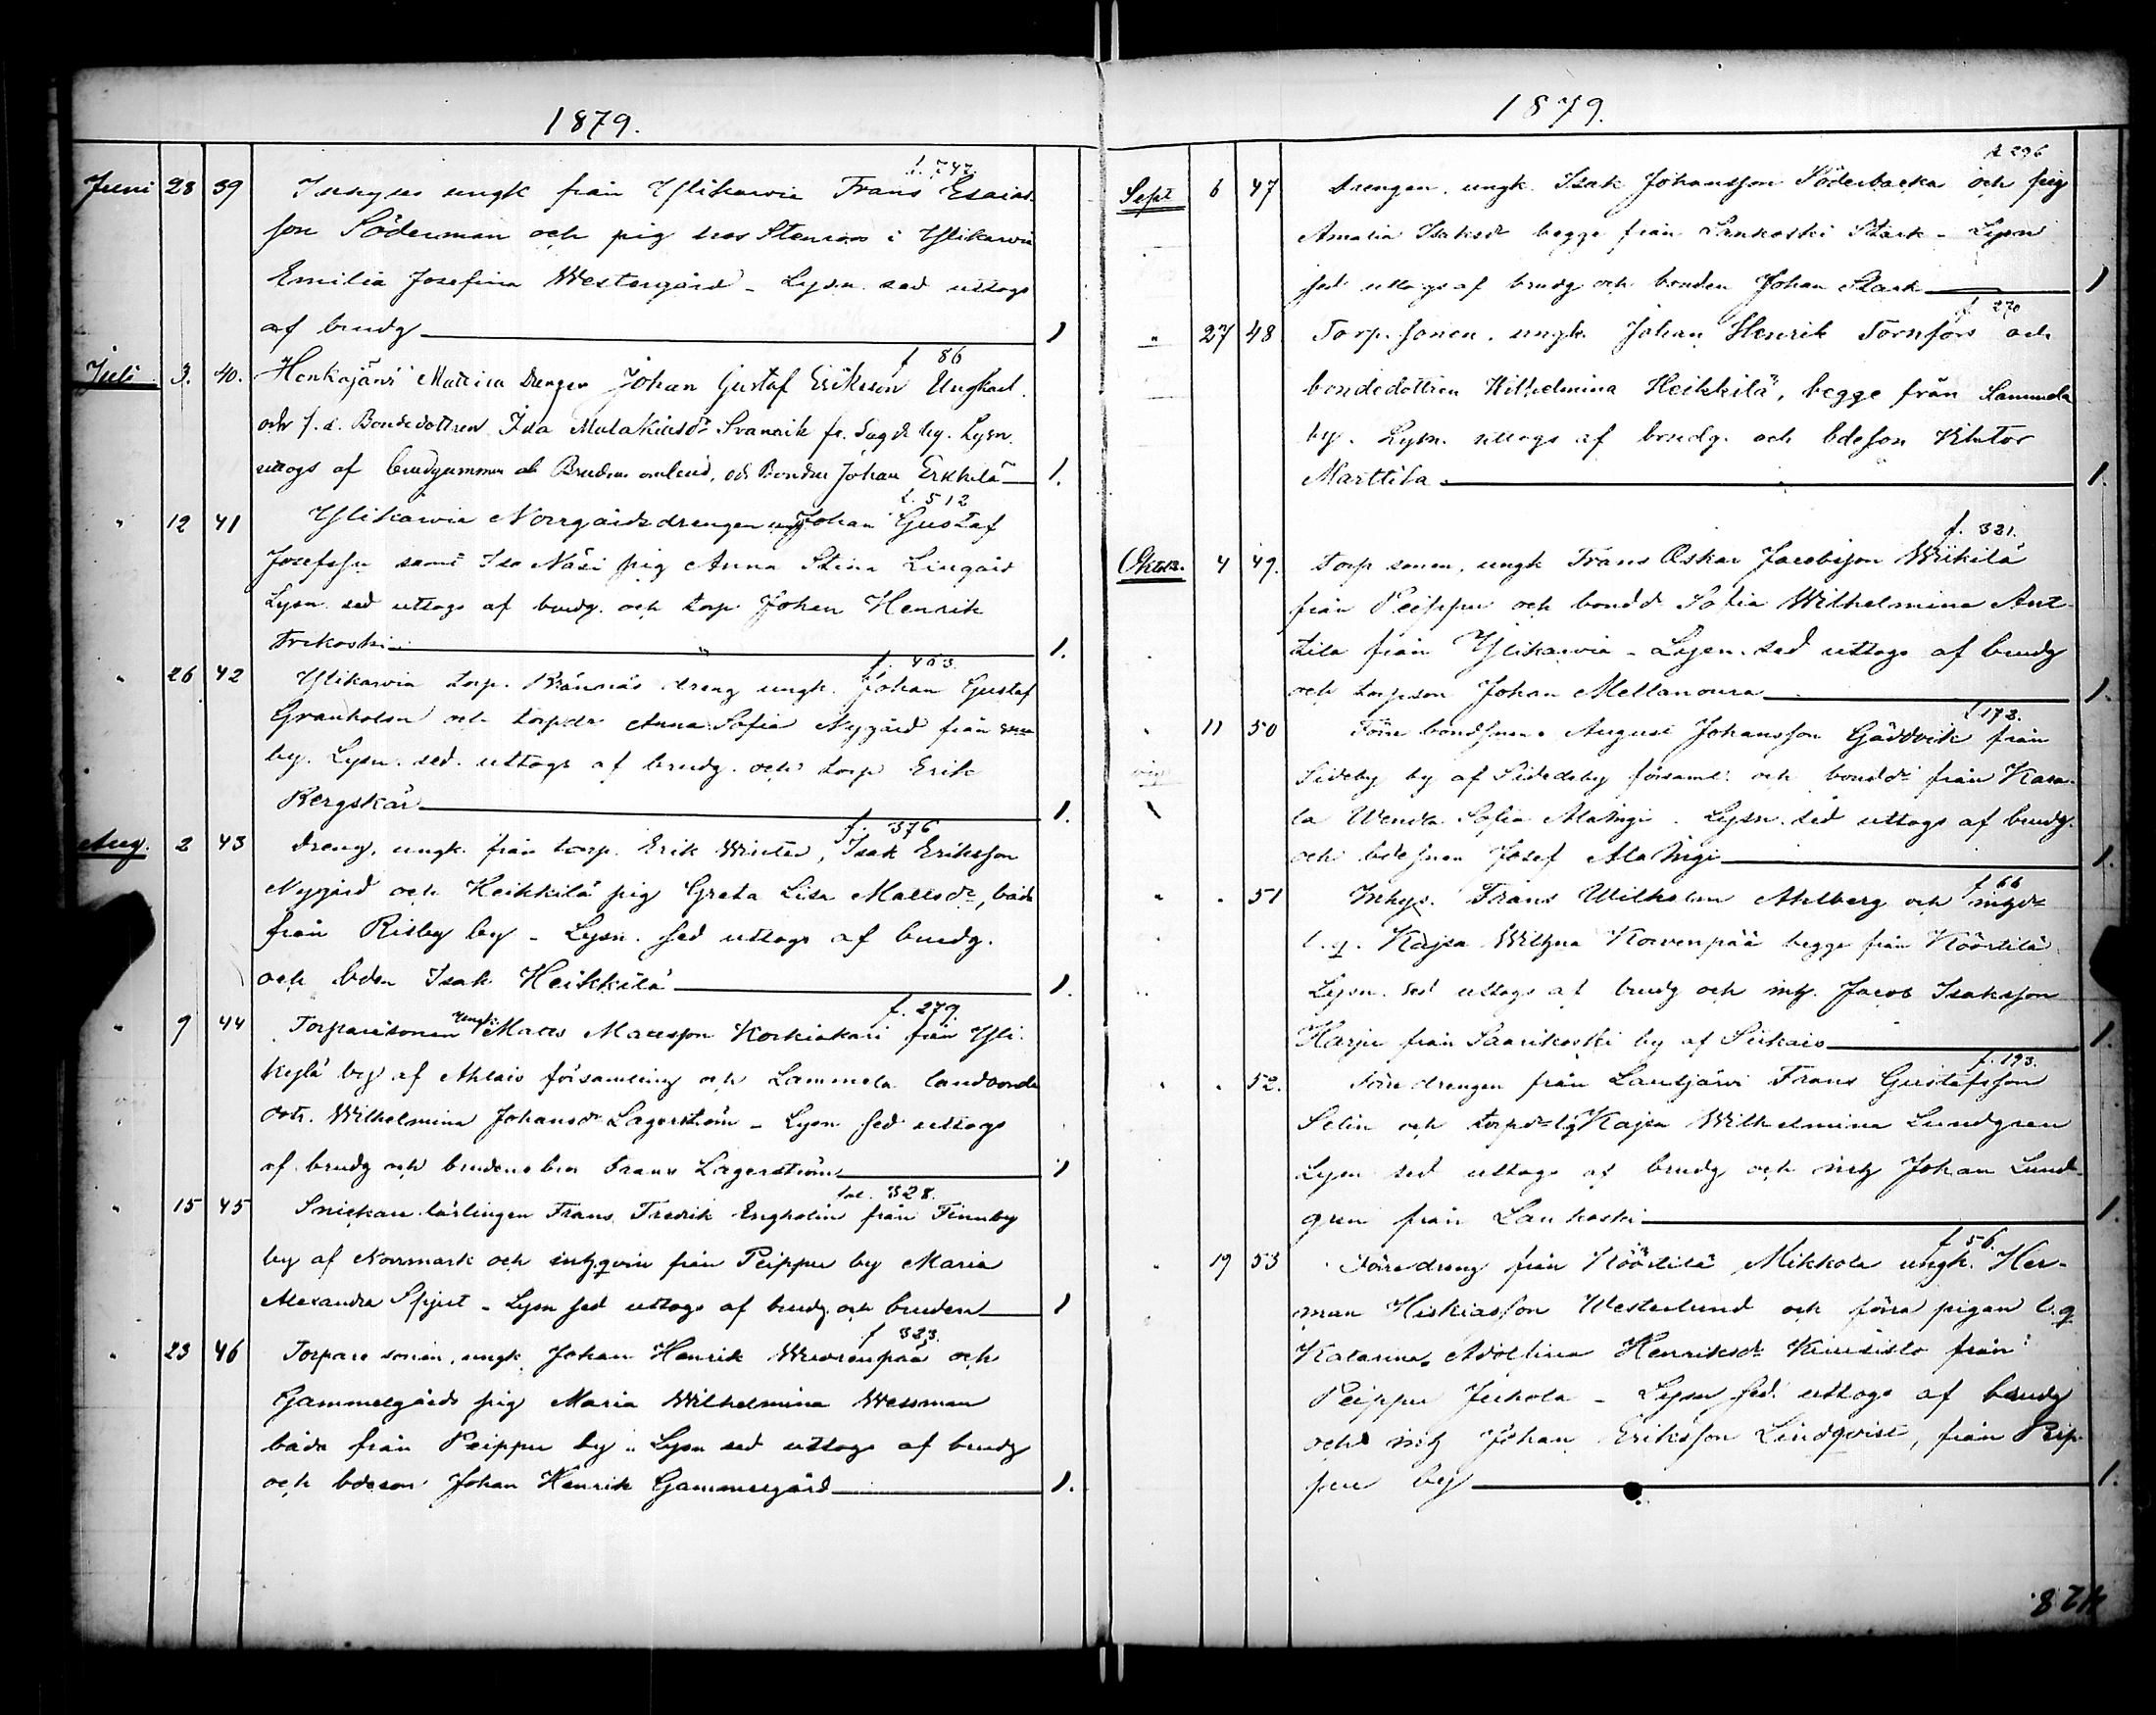 1879.
f. 747.
Juni 28 39 Inhyses ungk från Ylikawia Frans Esaias-
son Söderman och pig hos Stenroos i Ylikawia
Emilia Josefina Westergård - Lysn. sed uttogs
af brudg 1
f 86
Juli 3. 40. Henkajäns Mattisa drengen Johan Gustaf Eriksson Ungkarl.
och f. d. Bondedottren Ida Malakiasdr Svanvik fr. by. Lysn.
uttogs af brudgummen å Brudens ombud, och Bonden Johan Erkkilä 1.
f. 512
" 12 41 Ylikawia Norrgårdsdrengen ung Johan Gustaf
Josefsson samt Iso Näsi pig Anna Stina Lingård
Lysn. sed uttogs af brudg. och torp Johan Henrik
Trekoski 1.
f. 463.
" 26 42 Ylikawia torp. Brännäs dreng ungk. Johan Gustaf
Granholm och torpdr Anna Sofia Nygård från sma
by. Lysn. sed. uttogs af brudg. och torp Erik
Bergskär 1.
f. 376
Aug. 2 43 Dreng, ungk. från torp. Erik Winter, Isak Eriksson
Nygård och Heikkilä pig Greta Lisa Mattsdr, båda
från Risby by - Lysn. sed uttogs af brudg.
och bden Isak Heikkilä 1.
f. 279.
" 9 44 Torparesonen Ungk. Matts Mattsson Korkiakari från Yli-
kylä by af Ahlais församling och Lammela landbonde
dotr. Wilhelmina Johansdr Lagerström - Lysn sed uttogs
af brudg och brudens bror Frans Lagerström 1
fol. 328.
" 15 45 Snickare lärlingen Frans Fredrik Engholm från Finnby
by af Norrmark och inhyqvin från Peippu by Maria
Alexandra Spjut - Lysn sed uttogs af brudg. och bruden 1
f 323.
" 23 46 Torpare sonen, ungk Johan Henrik Wuorenpää och
Gammelgårds pig Maria Wilhelmina Wessman
båda från Peippu by - Lysn sed uttogs af brudg
och bdeson Johan Henrik Gammelgård 1.
1879.
f. 296
Sept 6 47 Drengen, ungk. Isak Johansson Söderbacka och pig
Amalia Isaksdr begge från Lankoski Stark - Lysn
sed uttogs af brudg och bonden Johan Stark 1
f. 270
" 27 48 Torp. sonen, ungk. Johan Henrik Tornfors och
bondedottren Wilhelmina Heikkilä, begge från Lammela
by. Lysn. uttogs af brudg. och bdeson Viktor
Marttila. 1.
f. 321.
Oktob. 4 49. Torp sonen, ungk Frans Oskar Jacobsson Wiikilä
från Peippu och bondd Sofia Wilhelmina Ant-
tila från Ylikawia - Lysn. sed uttogs af brudg
och torpson Johan Mellanoura 1.
f 173.
" 11 50 Förre bondsonen August Johansson Gäddvik från
Sideby by af Sideby församl: och bonddr från Kasa-
la Wenda Sofia Ala Ingi. Lysn. sed uttogs af brudg.
och bdesonen Josef Ala Ingi 1.
f 66
" " 51 Inhys. Frans Wilhelm Ahlberg och inhydr
l. q. Kajsa Wilhna Korvenpää begge från Köörtilä
Lysn. sed uttogs af brudg och inhy. Jacob Isaksson
Harju från Saarikoski by af Siikais 1.
f. 193.
" " 52. Förre drengen från Lautjärvi Frans Gustafsson
Selin och torpdr lq Kajsa Wilhelmina Lundgren
Lysn sed uttogs af brudg och inhy Johan Lund-
gren från Lankoski 1.
f 56.
" 19 53 Förre dreng från Köörtilä Mikkola ungk. Her-
man Hiskiasson Westerlund och förra pigan l. q.
Katarina Adolfina Henriksdr Kiusisto från
Peippu Juhola - Lysn sed. uttogs af brudg
och inhy Johan Eriksson Lindqvist, från Peip-
pu by 1.
428.